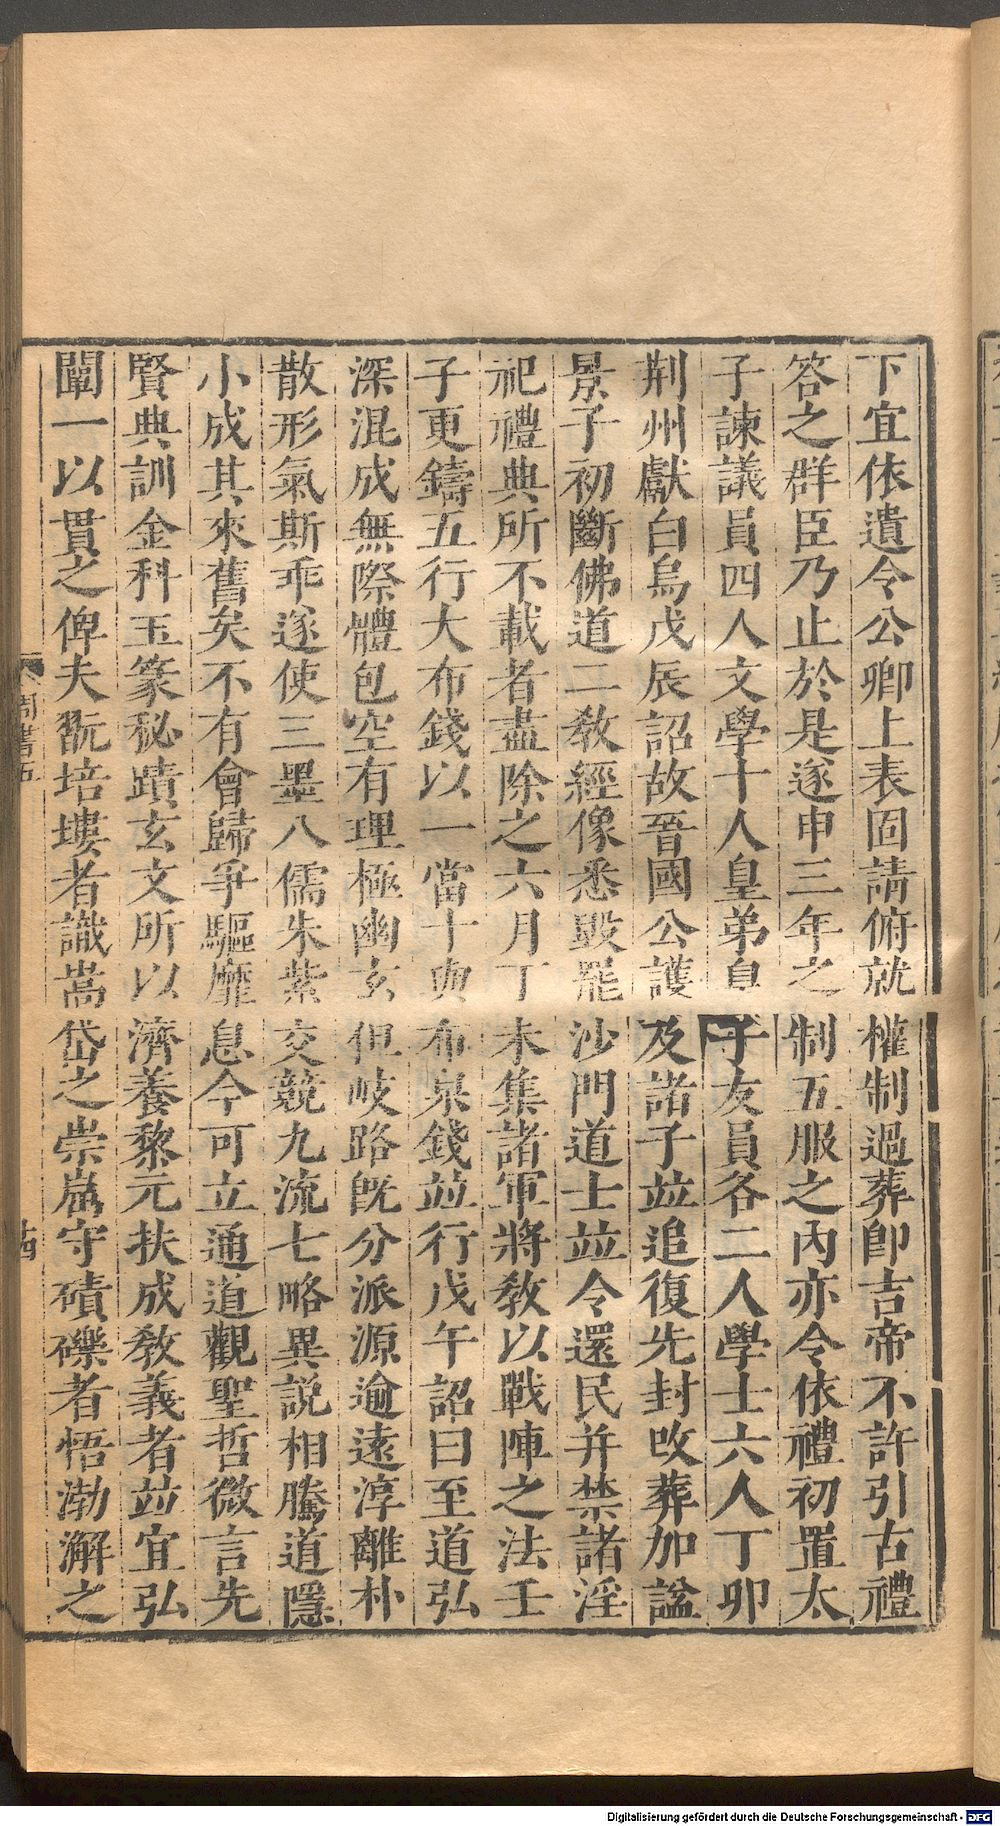 下宜依遺令公卿上表固請俯就權制過葬卽吉帝不許引古禮
答之群臣乃止於是遂申三年之制五服之內亦令依禮初置太
子諫議員四人文學十人皇弟皇子友員各二人學士六人丁卯
荆州獻白烏戊辰詔故晉國公護及諸子竝追復先封改葬加謚
景子初斷佛道二教經像悉毀罷沙門道士竝令還民并禁諸淫
祀禮典所不載者盡除之六月丁未集諸軍將教以戰陣之法壬
子更鑄五行大布錢以一當十與布泉錢竝行戊午詔曰至道弘
深混成無際體包空有理極幽玄但岐路旣分派源逾遠淳離朴
散形氣斯乖遂使三墨八儒朱紫交競九流七略異說相騰道隱
小成其來舊矣不有會歸爭驅靡息今可立通道觀聖哲微言先
賢典訓金科玉篆秘蹟玄文所以濟養黎元扶成教義者竝宜弘
闡一以貫之俾夫翫培塿者識嵩岱之崇崫守磧礫者悟渤澥之
周書五
十四
Digitalisierung gefördert durch die Deutsche Forschungsgemeinschaft - DFG